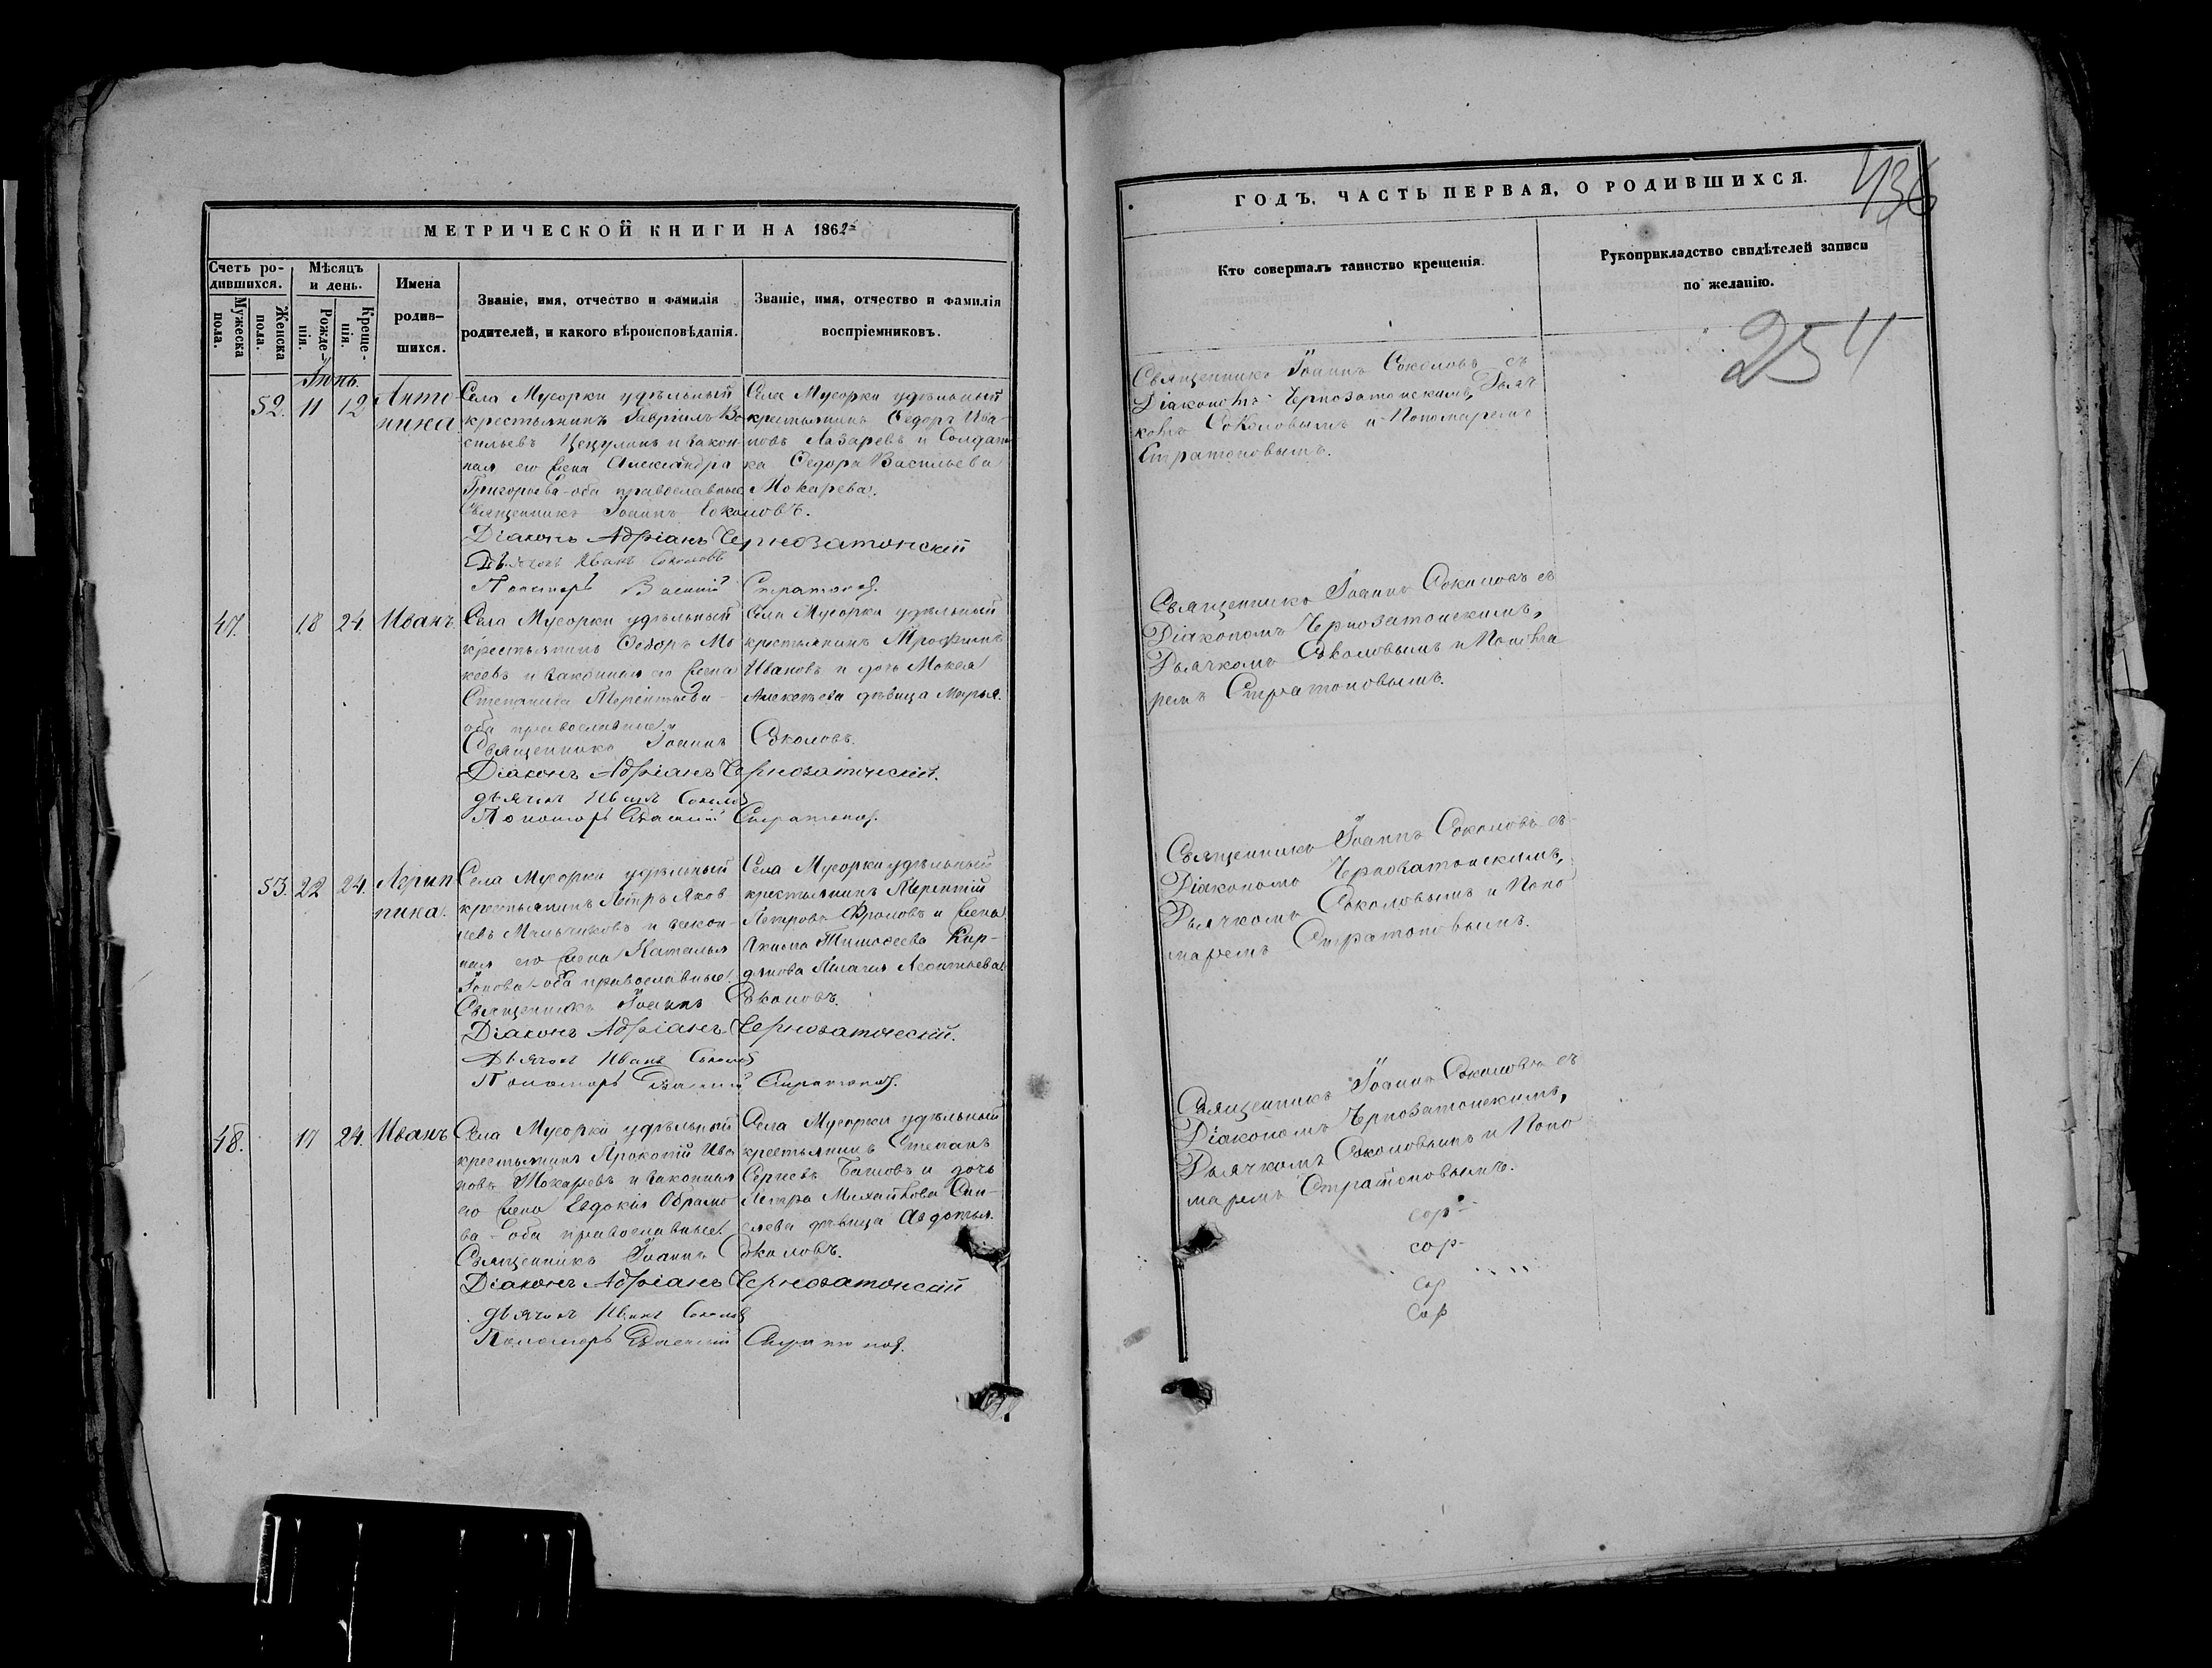 МЕТРИЧЕСКОЙ КНИГИ НА 1862
Счетъ родившихся.
Мѣсяцъ и день.
Имена родившихся.
Званіе, имя, отчество и фамилія родителей, и какого вѣроисповѣданія.
Званіе, имя, отчество и фамилія воспріемниковъ.
Мужеска пола.
Женска пола.
Рожденія.
Крещенія.
Іюнь.
52. 11 12 Антонина
Села Мусорки удѣльный
крестьянинъ Гавріилъ Ва
сильевъ Цецулинъ и закон-
ная его жена Александра
Григорьева - оба православные
Села Мусорки удѣльный
крестьянинъ Ѳедоръ Ива-
новъ Лазаревъ и Солдат-
ка Ѳедора Васильева
Мокарева.
Священникъ Іоаннъ Соколовъ.
Діаконъ Адріанъ Чернозатонскій
Дьячокъ Иванъ Соколовъ
Пономарь Василій Стратоновъ.
47. 18 24. Иванъ.
Села Мусорки удѣльный
крестьянинъ Ѳедоръ Мо
кеевъ и законная его жена
Степанида Терентьева -
оба православные.
Села Мусорки удѣльный
крестьянинъ Трофимъ
Ивановъ и дочь Мокея
Алексѣева дѣвица Марья.
Священникъ Іоаннъ Соколовъ.
Діаконъ Адріанъ Чернозатонскій.
дьячокъ Иванъ Соколовъ
Пономарь Василій Стратоновъ.
53. 22 24. Агрип
пина.
Села Мусорки удѣльный
крестьянинъ Петръ Яков
левъ Мальчиковъ и закон-
ная его жена Наталья
оба православные.
Села Мусорки удѣльный
крестьянинъ Терентій
Петровъ Фроловъ и жена
Якима Тимоѳеева Кир-
Пелагея Леонтьева
Священникъ Іоаннъ Соколовъ.
Діаконъ Адріанъ Чернозатонскій.
Дьячокъ Иванъ Соколовъ
Пономарь Василій Стратоновъ.
48. 17 24. Иванъ
Села Мусорки удѣльный
крестьянинъ Прокопій Ива
новъ Токаревъ и законная
его жена Евдокія Абрамо
ва - оба православные.
Села Мусорки удѣльный
крестьянинъ Степанъ
Сергѣевъ Батовъ и дочь
Петра Михайлова
дѣвица Авдотья.
Священникъ Іоаннъ Соколовъ.
Діаконъ Адріанъ Чернозатонскій
дьячокъ Иванъ Соколовъ
Пономарь Василій Стратоновъ.
ГОДЪ, ЧАСТЬ ПЕРВАЯ, О РОДИВШИХСЯ.
436
Кто совершалъ таинство крещенія.
Рукоприкладство свидѣтелей записи
по желанію.
254
Священникъ Іоаннъ Соколовъ съ
Діакономъ Чернозатонскимъ, Дьяч
комъ Соколовымъ и Пономаремъ
Стратоновымъ.
Священникъ Іоаннъ Соколовъ съ
Діакономъ Чернозатонскимъ,
Дьячкомъ Соколовымъ и Понома
ремъ Стратоновымъ.
Священникъ Іоаннъ Соколовъ съ
Діакономъ Чернозатонскимъ,
Дьячкомъ Соколовымъ и Поно
маремъ Стратоновымъ.
Священникъ Іоаннъ Соколовъ съ
Діакономъ Чернозатонскимъ,
Дьячкомъ Соколовымъ и Поно
маремъ Стратоновымъ.